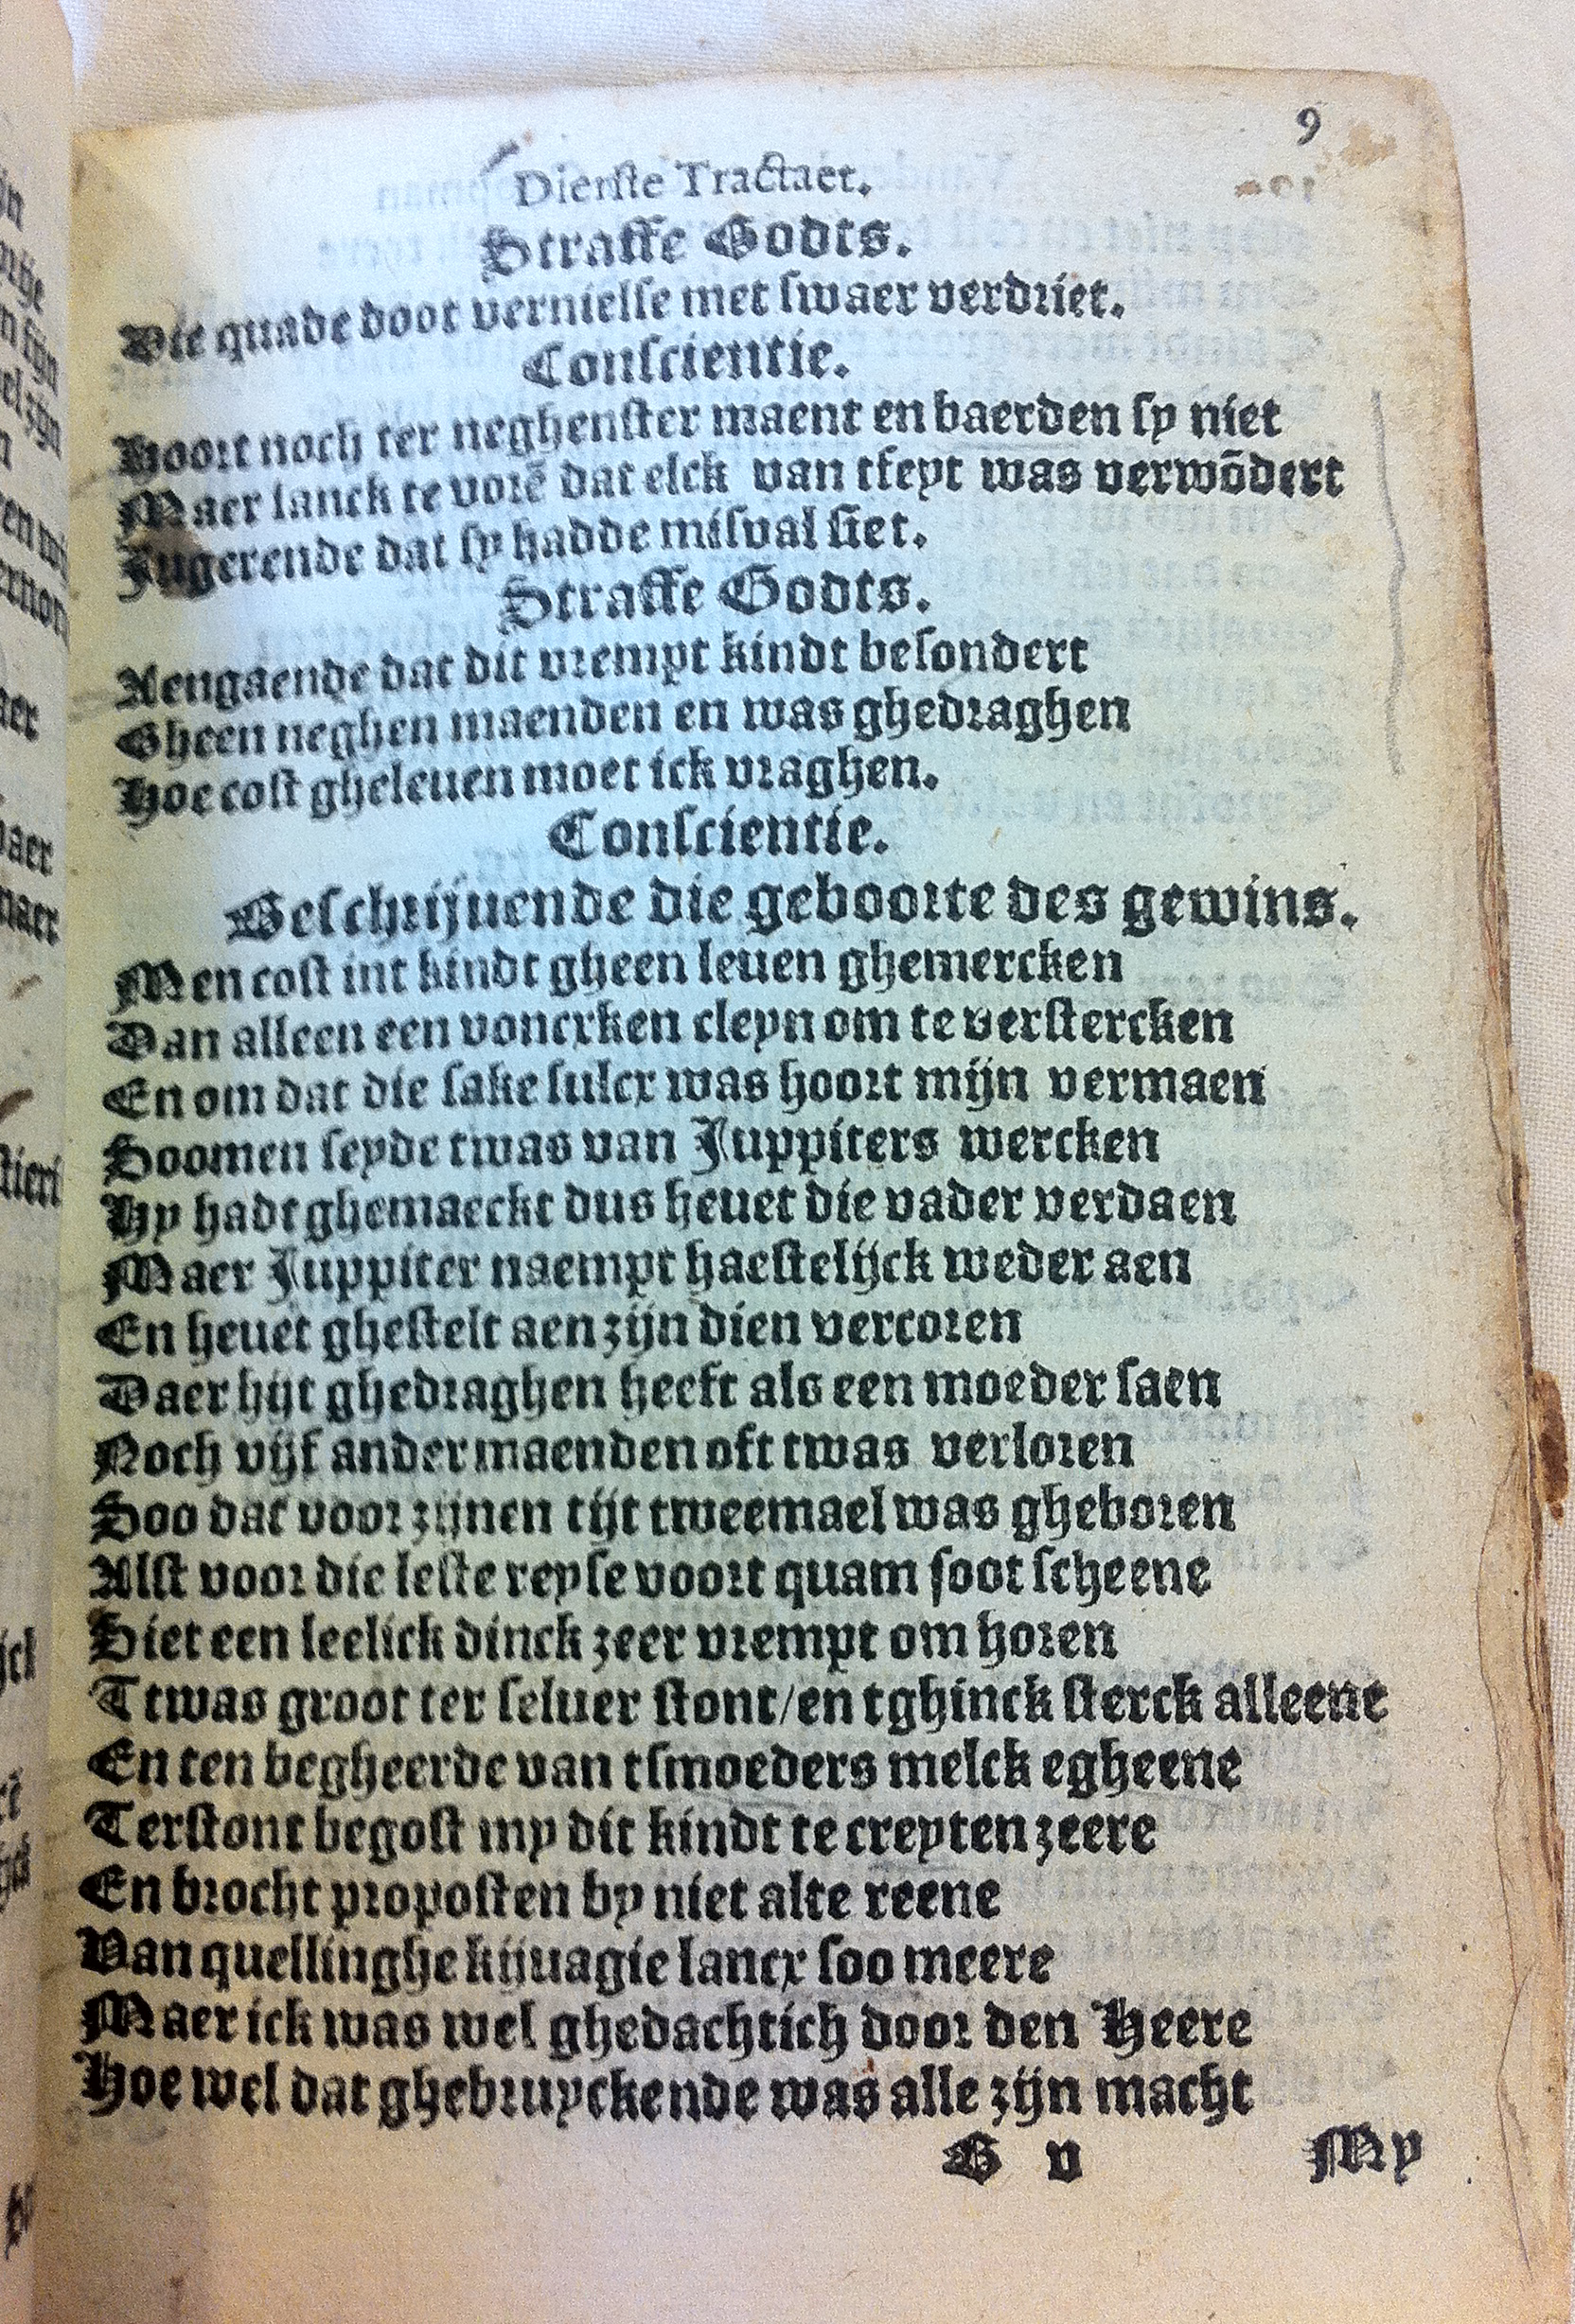 9
Dierste Tractaet.
Straffe Godts.
Die quade doot vernielse met swaer verdriet.
Conscientie.
Hoort noch ter neghenster maent en baerden sy niet
Maer lanck te vorē dat elck van tfeyt was verwōdert
Jugerende dat sy hadde misval siet.
Straffe Godts.
Aengaende dat dit vrempt kindt besondert
Gheen neghen maenden en was ghedraghen
Hoe cost gheleuen moet ick vraghen.
Conscientie.
Beschrijuende die geboorte des gewins.
Men cost int kindt gheen leuen ghemercken
Dan alleen een voncxken cleyn om te verstercken
En om dat die sake sulcx was hoort mijn vermaen
Soomen seyde twas van Juppiters wercken
Hy hadt ghemaeckt dus heuet die vader verdaen
Maer Juppiter naempt haestelijck weder aen
En heuet ghestelt aen zijn dien vercoren
Daer hijt ghedraghen heeft als een moeder saen
Noch vijf ander maenden oft twas verloren
Soo dat voor zijnen tijt tweemael was gheboren
Alst voor die leste reyse voort quam soot scheene
Siet een leelick dinck zeer vrempt om horen
Ttwas groot ter seluer stont/en tghinck sterck alleene
En ten begheerde van tsmoeders melck egheene
Terstont begost my dit kindt te creyten zeere
En brocht proposten by niet alte reene
Van quellinghe kijuagie lancx soo meere
Maer ick was wel ghedachtich door den Heere
Hoe wel dat ghebruyckende was alle zijn macht
B v My